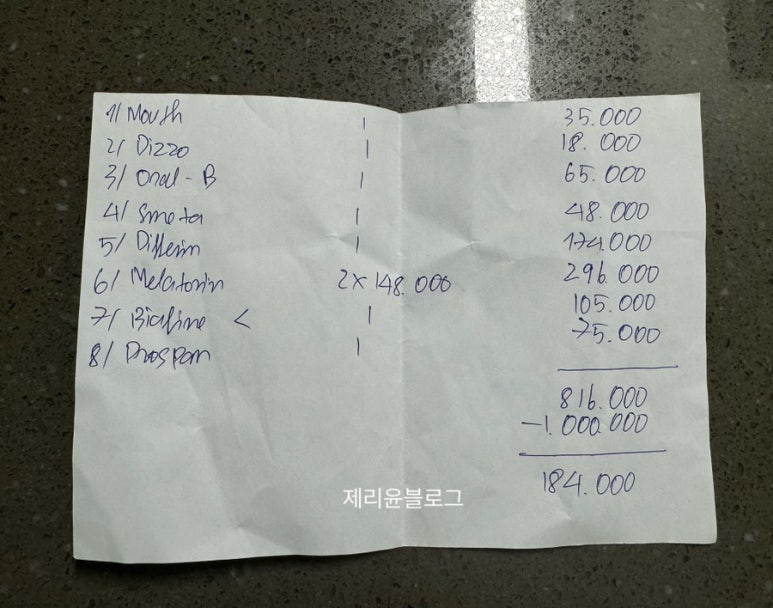 1/ Mouth 1 35.000
2/ Dizzo 1 18.000
3/ Oral-B 1 65.000
4/ Smeta 1 48.000
5/ Differin 1 174.000
6/ Melatonin 2 x 148.000 296.000
7/ Biafine < 1 105.000
8/ Prospan 1 75.000
816.000
-1.000.000
184.000
제리윤블로그